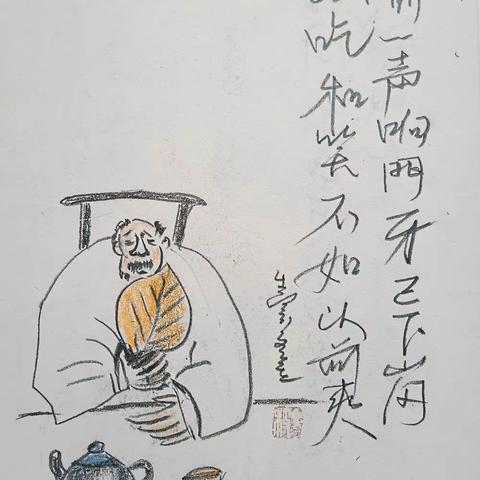 一声响門牙已下岗
吃和笑不如以前爽